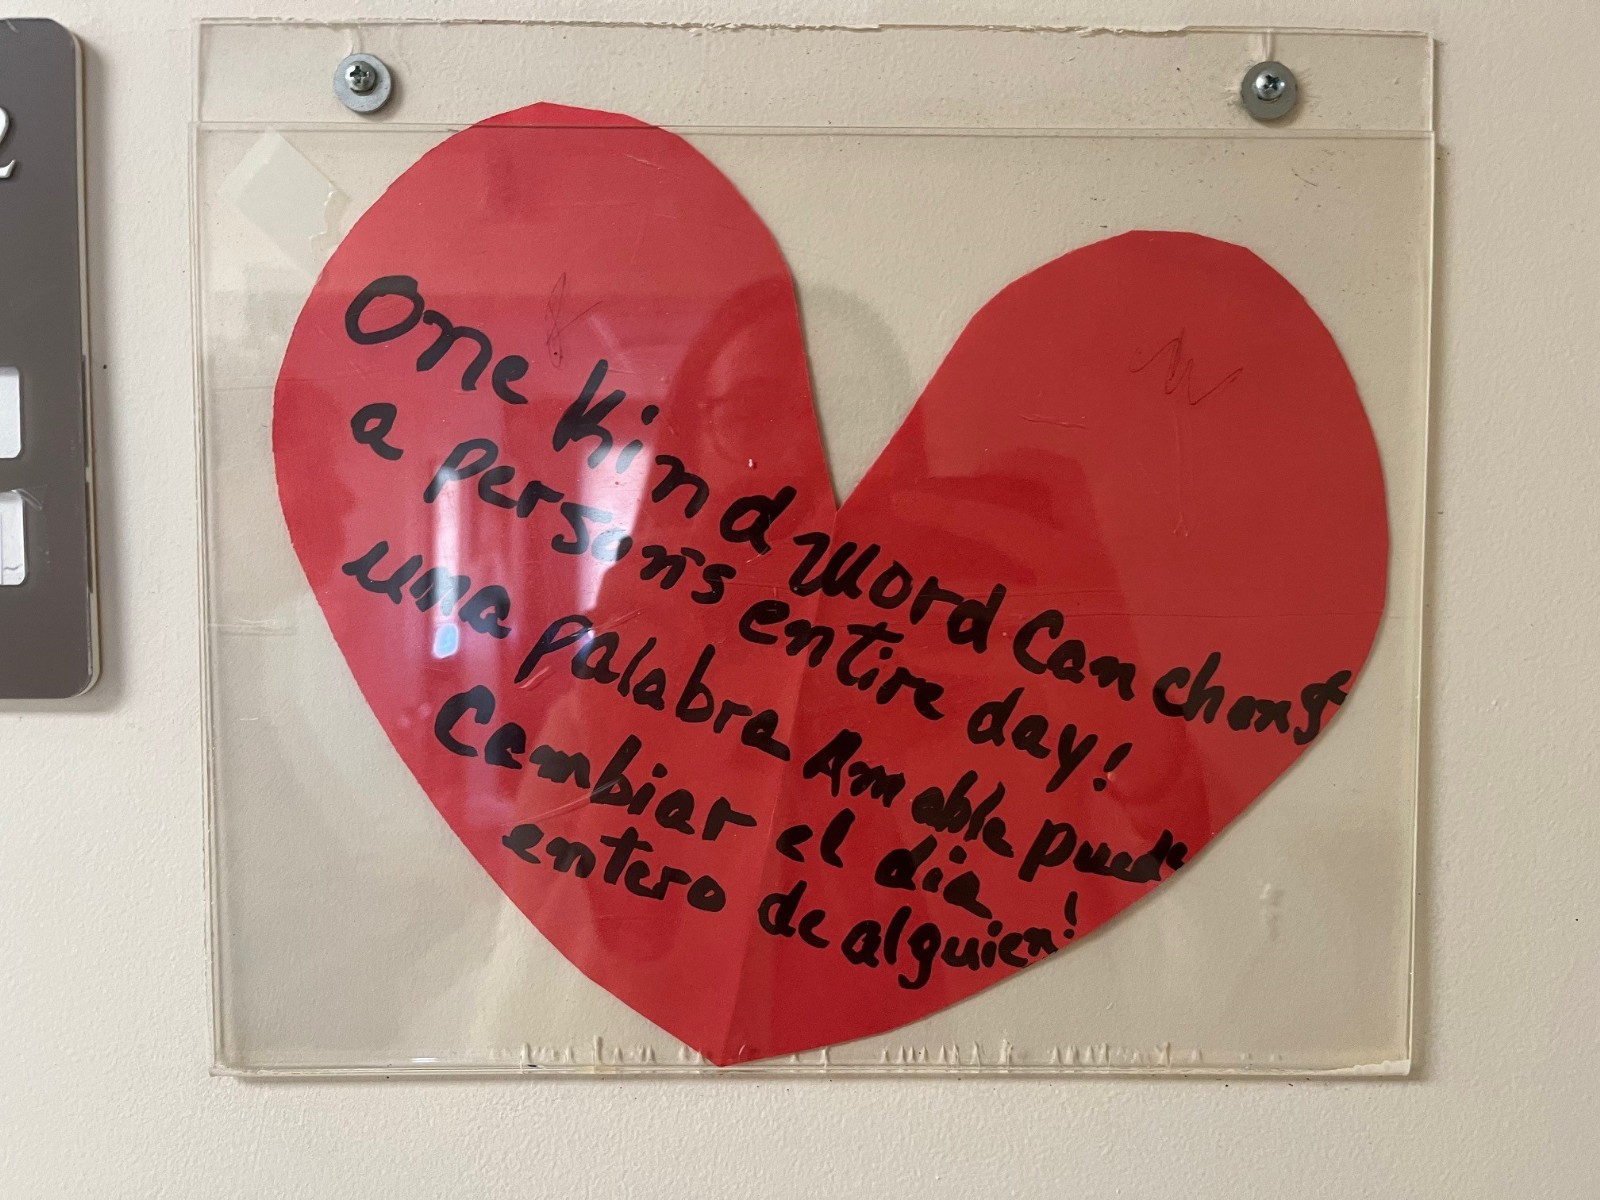 One Kind Word Can change
a person's entire day!
una palabra Amable puede
Cambiar el dia
entero de alguien!
2